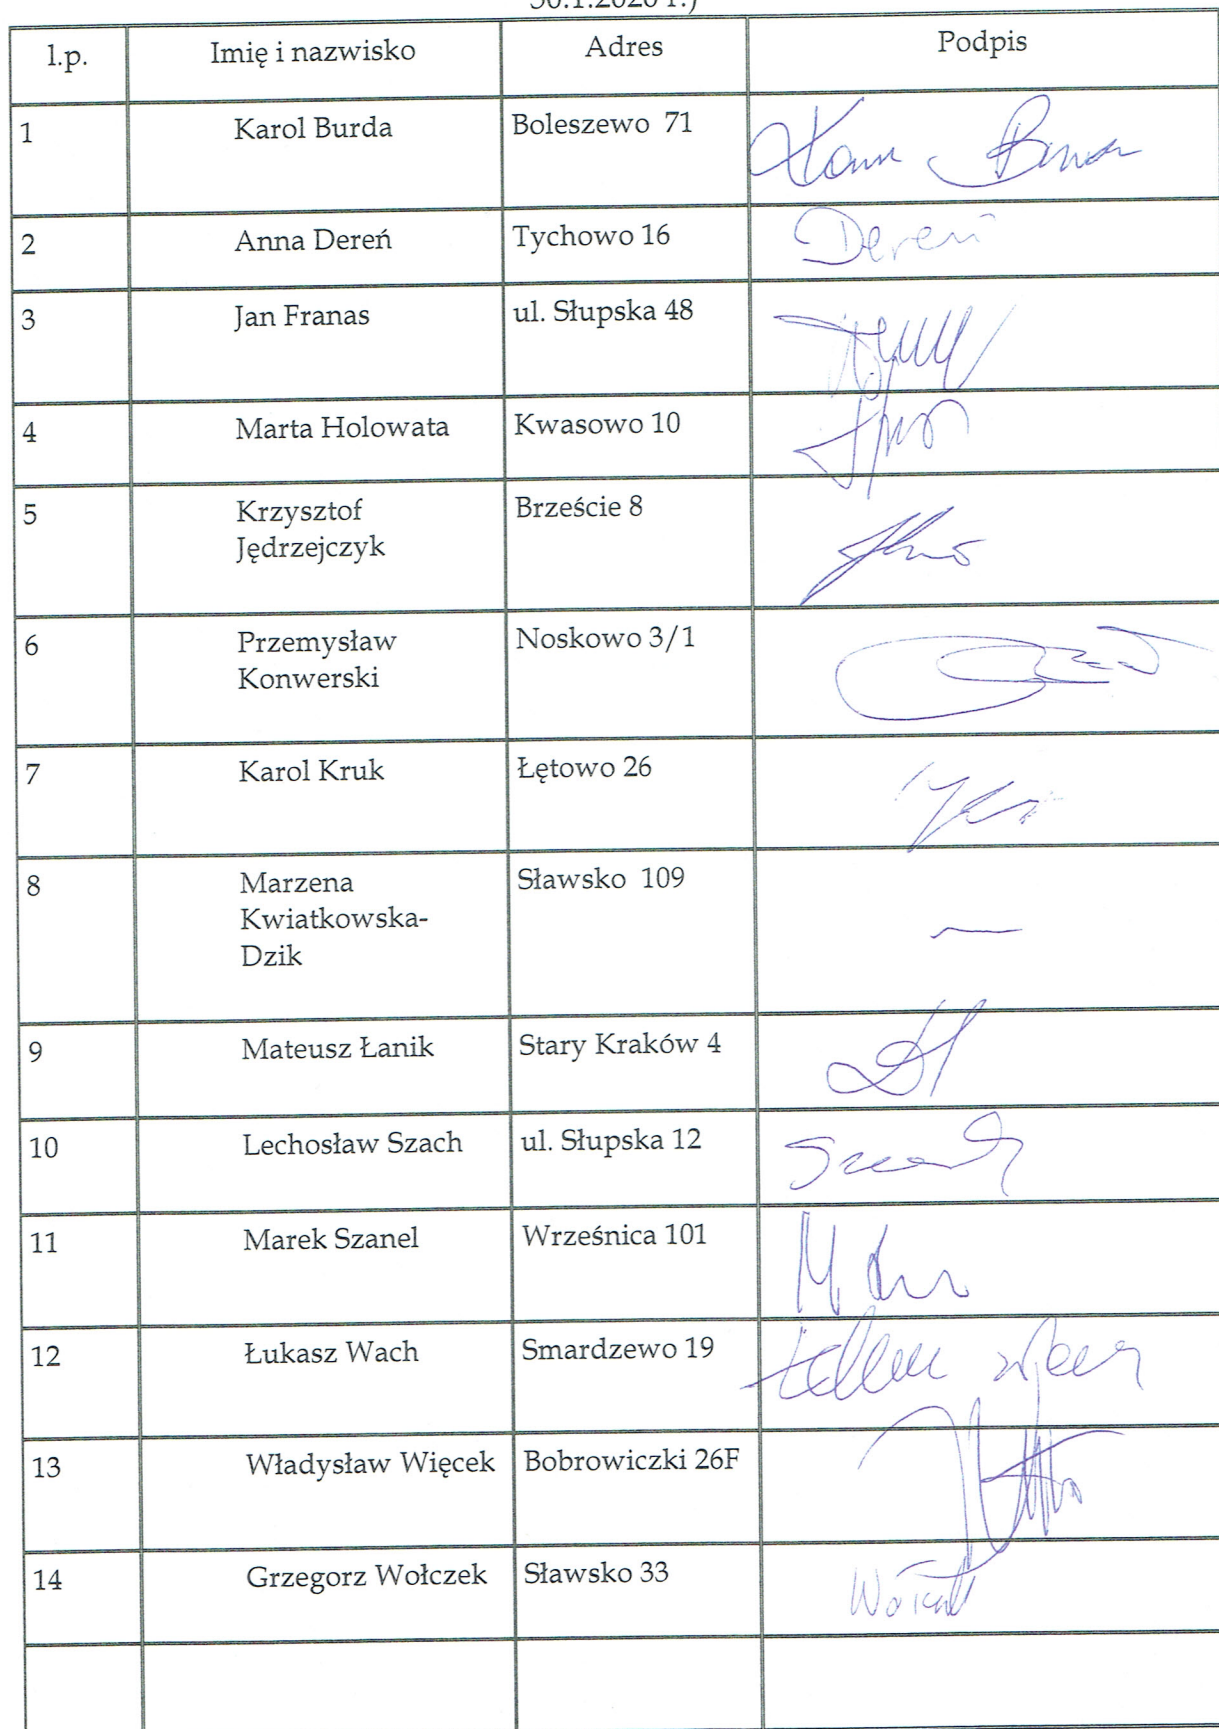 l.p. Imię i nazwisko Adres Podpis
1 Karol Burda Boleszewo 71
2 Anna Dereń Tychowo 16 Dereń
3 Jan Franas ul. Słupska 48
4 Marta Holowata Kwasowo 10
5 Krzysztof Brzeście 8
Jędrzejczyk
6 Przemysław Noskowo 3/1
Konwerski
7 Karol Kruk Łętowo 26
8 Marzena Sławsko 109
Kwiatkowska-
Dzik
—
9 Mateusz Łanik Stary Kraków 4
10 Lechosław Szach ul. Słupska 12
11 Marek Szanel Wrześnica 101
12 Łukasz Wach Smardzewo 19
13 Władysław Więcek Bobrowiczki 26F
14 Grzegorz Wołczek Sławsko 33